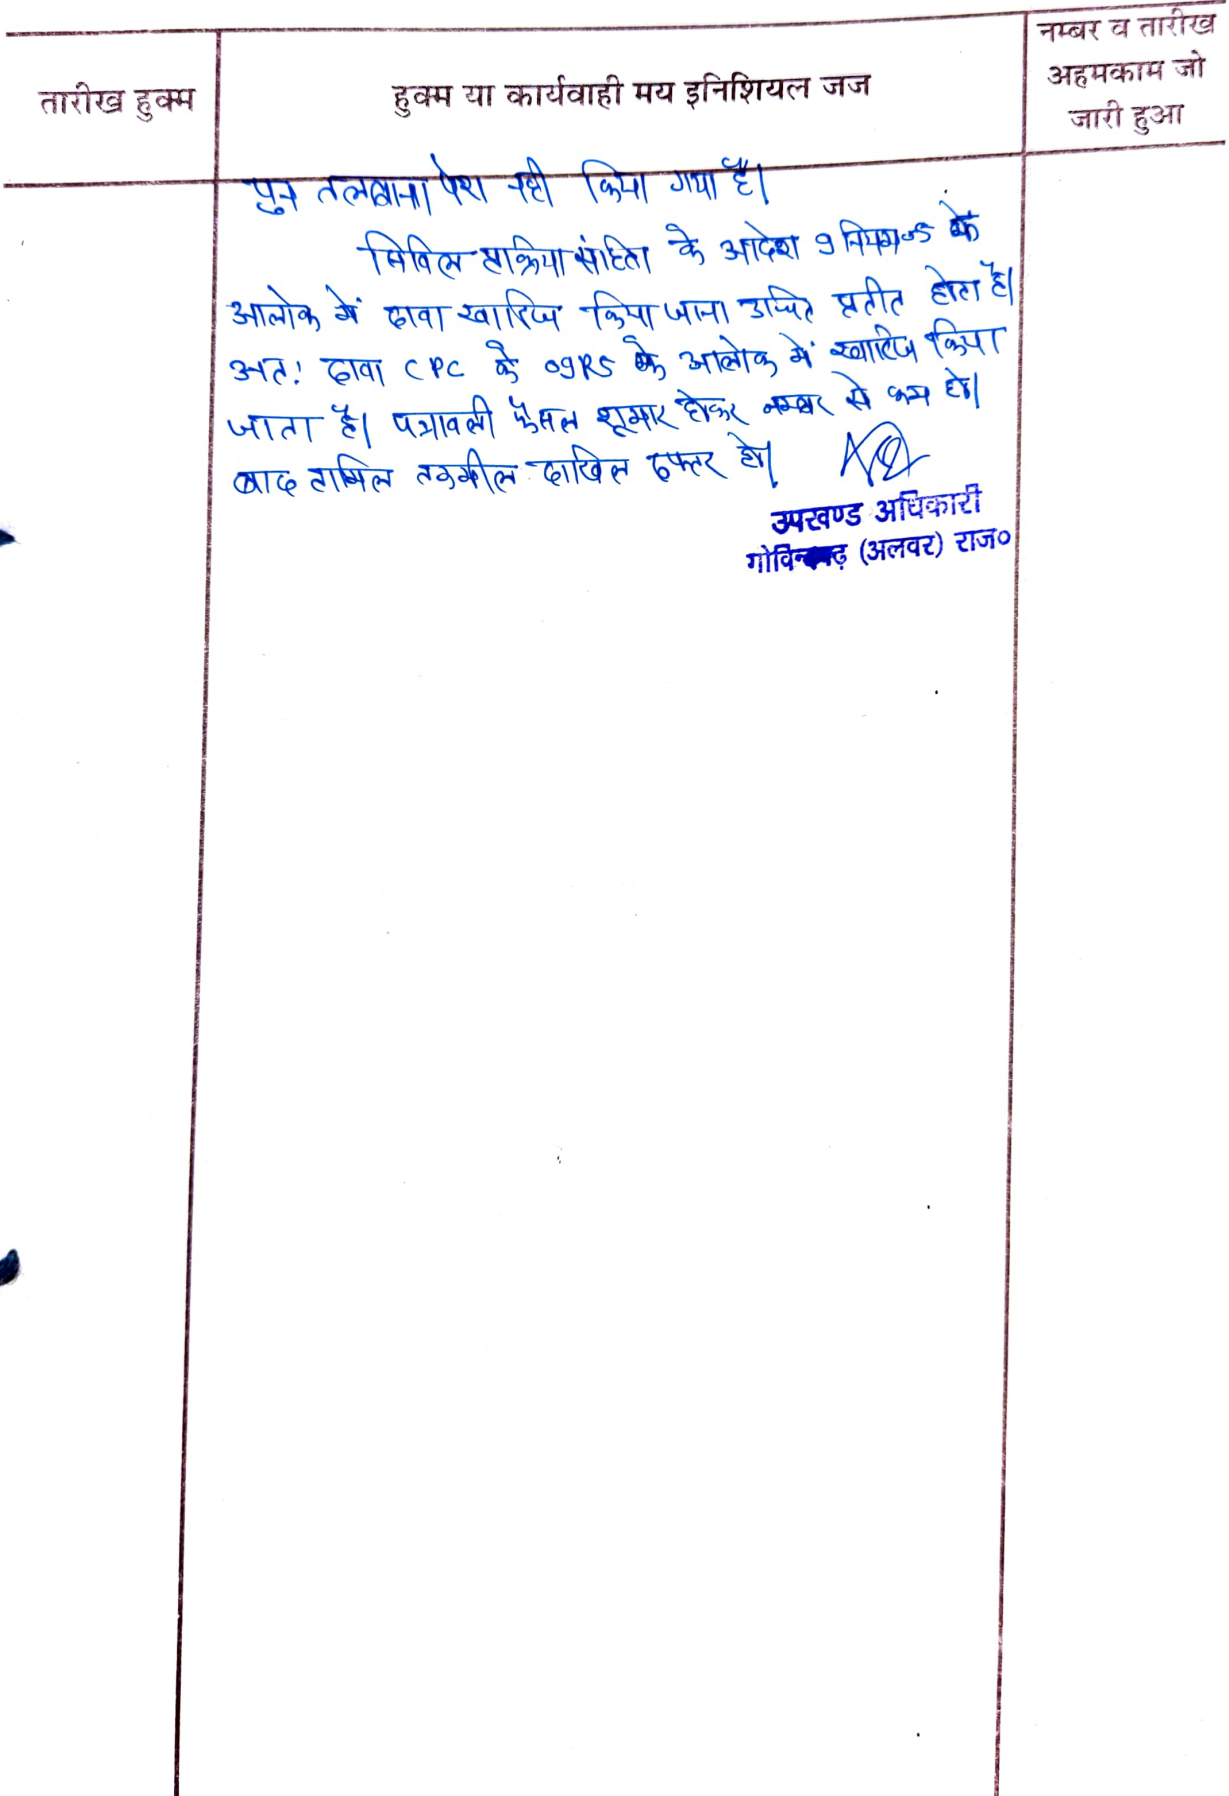 तारीख हुक्म
हुक्म या कार्यवाही मय इनिशियल जज
नम्बर व तारीख
अहमकाम जो
जारी हुआ
पुन तलबाना पेश नही किया गया है।
सिविल प्रक्रिया संहिता के आदेश 9 नियम 5 के
आलोक में दावा खारिज किया जाना उचित प्रतीत होता है।
अतः दावा CPC के O9R5 के आलोक में खारिज किया
जाता है। पत्रावली फैसल शूमार होकर नम्बर से कम हो।
बाद तामिल तकमील दाखिल दफ्तर हो।
उपखण्ड अधिकारी
गोविन्दगढ़ (अलवर) राज०